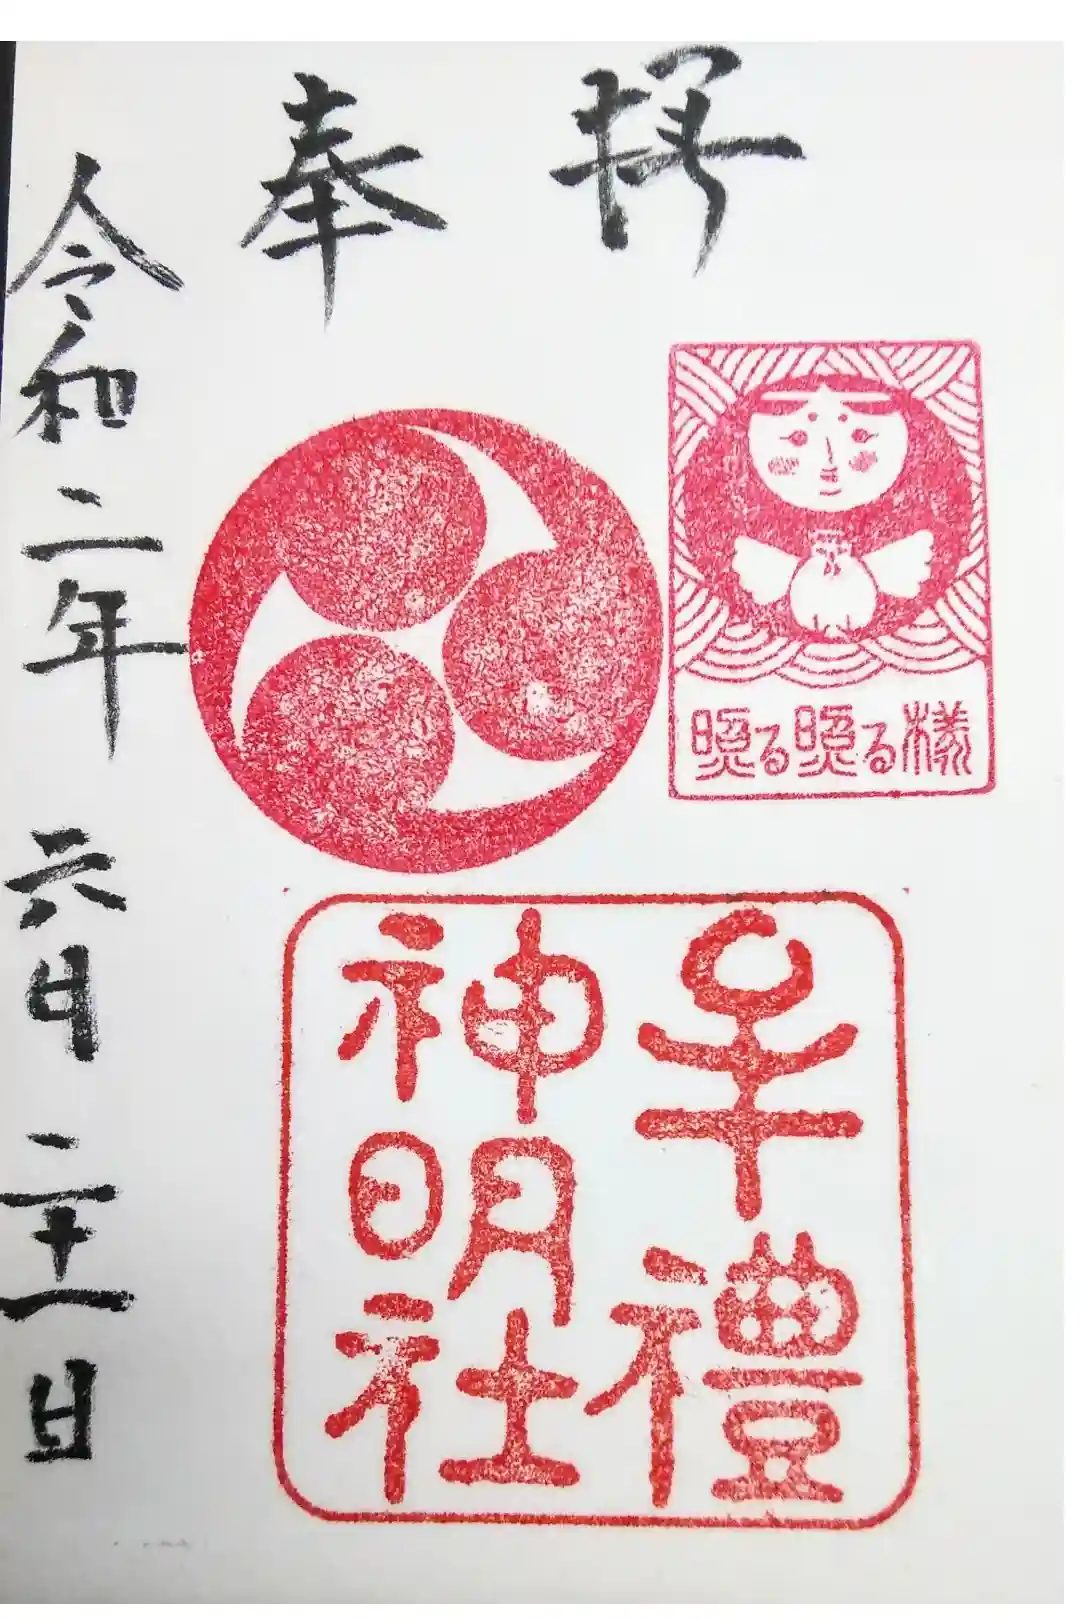 奉拝
令和二年 六月 二十一日
照る照る様
牟禮
神明社